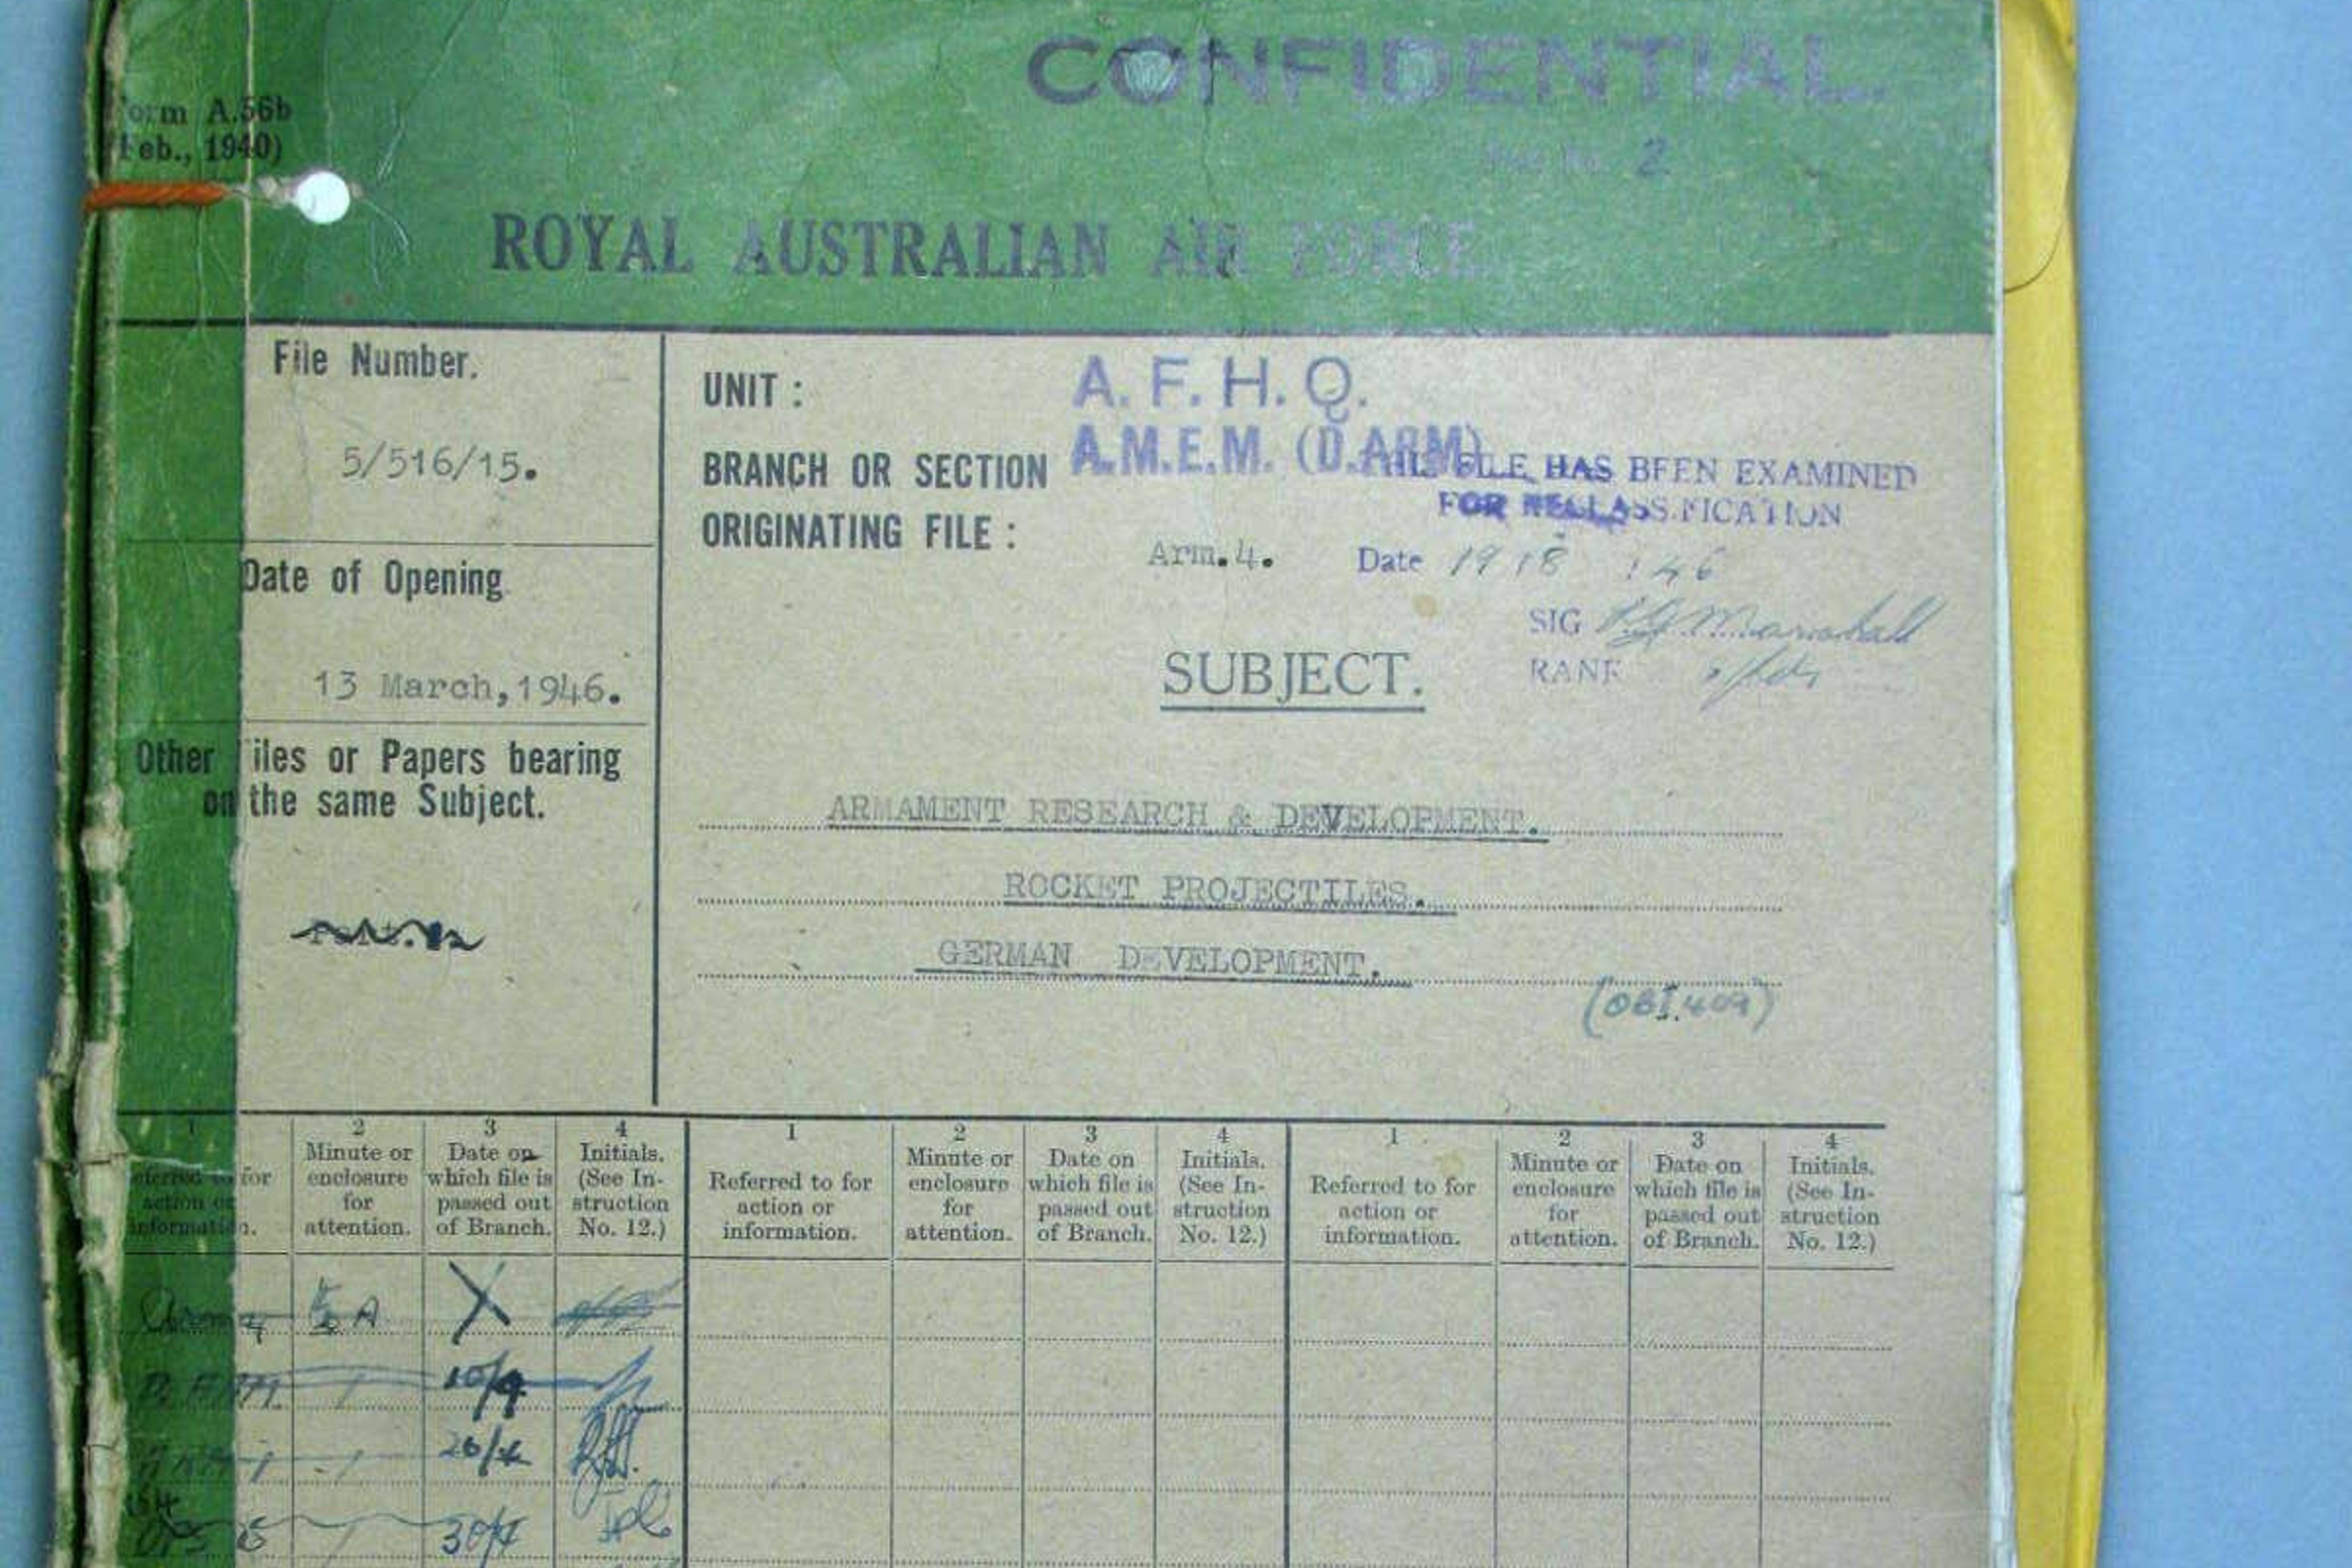 CONFIDENTIAL
A.56b
1940)
2
ROYAL AUSTRALIAN AIR FORCE
File Number.
5/516/15.
Date of Opening
13 March, 1946.
Other iles or Papers bearing
on the same Subject.
UNIT : A. F. H. Q.
BRANCH OR SECTION A.M.E.M. (D.ARM)
FILE HAS BEEN EXAMINED
FOR RECLASSIFICATION
ORIGINATING FILE : Arm.4.
Date
SIG Marshall
RANK
SUBJECT.
ARMAMENT RESEARCH & DEVELOPMENT.
ROCKET PROJECTILES.
GERMAN DEVELOPMENT.
1 2 3 4 1 2 3 4 1 2 3 4
for
action or
information.
Minute or
enclosure
for
attention.
Date on
which file is
passed out
of Branch.
Initials.
(See In-
struction
No. 12.)
Referred to for
action or
information.
Minute or
enclosure
for
attention.
Date on
which file is
passed out
of Branch.
Initials.
(See In-
struction
No. 12.)
Referred to for
action or
information.
Minute or
enclosure
for
attention.
Date on
which file is
passed out
of Branch.
Initials.
(See In-
struction
No. 12.)
A
10/9
26/4
30/4